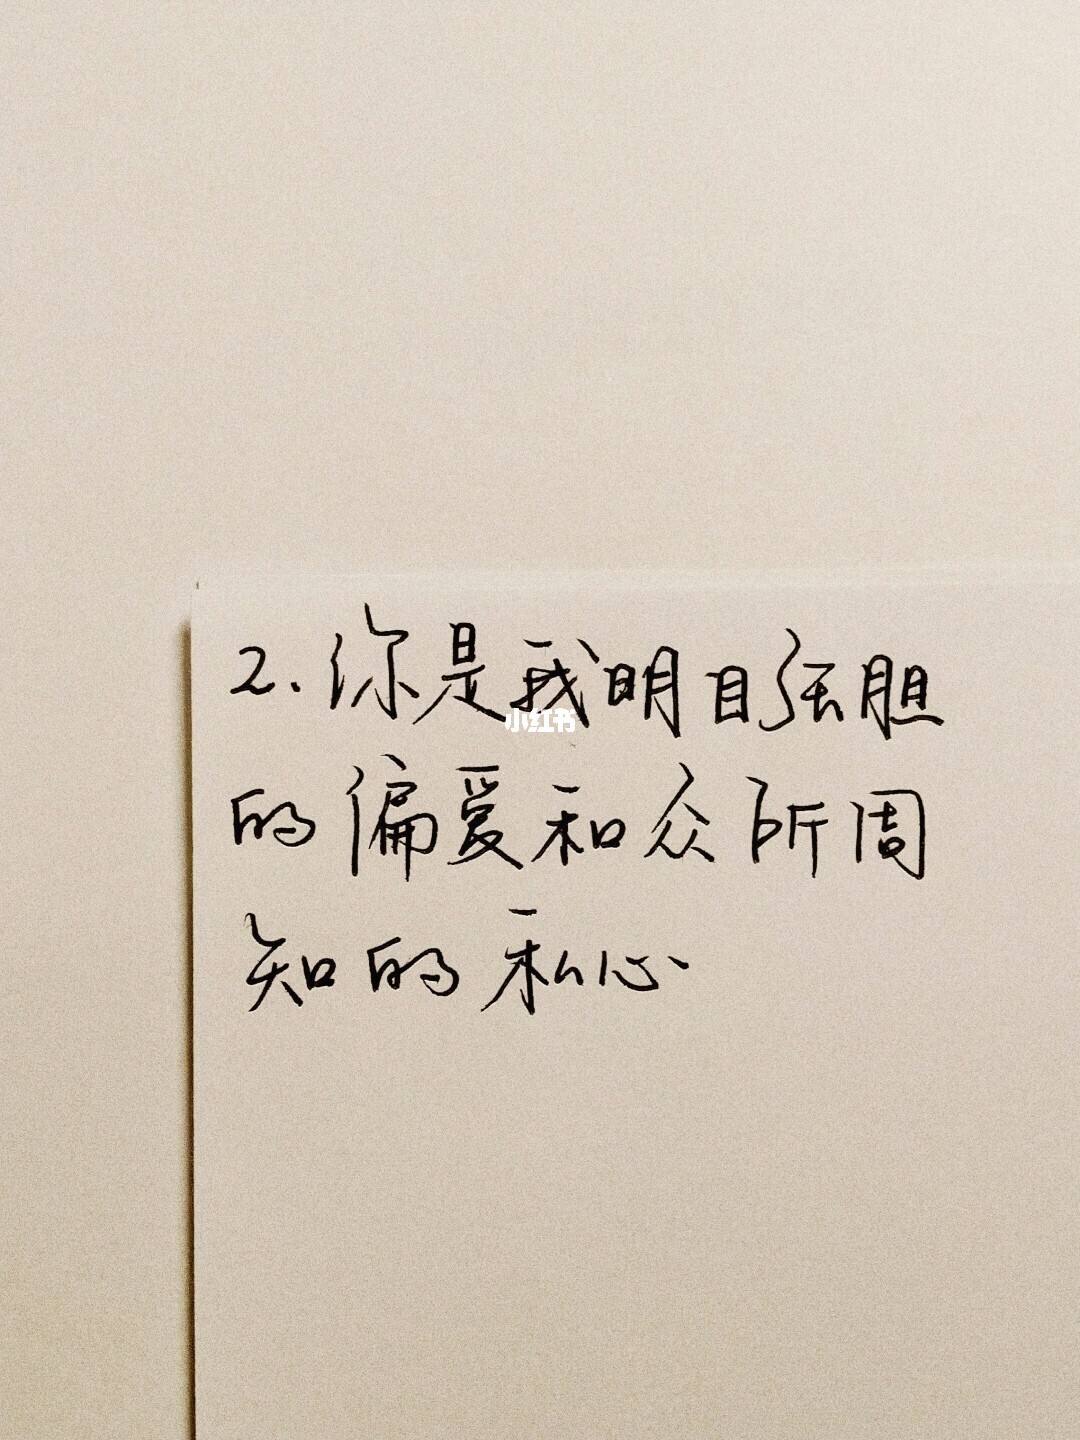 2.你是我明目张胆
小红书
的偏爱和众所周
知的私心